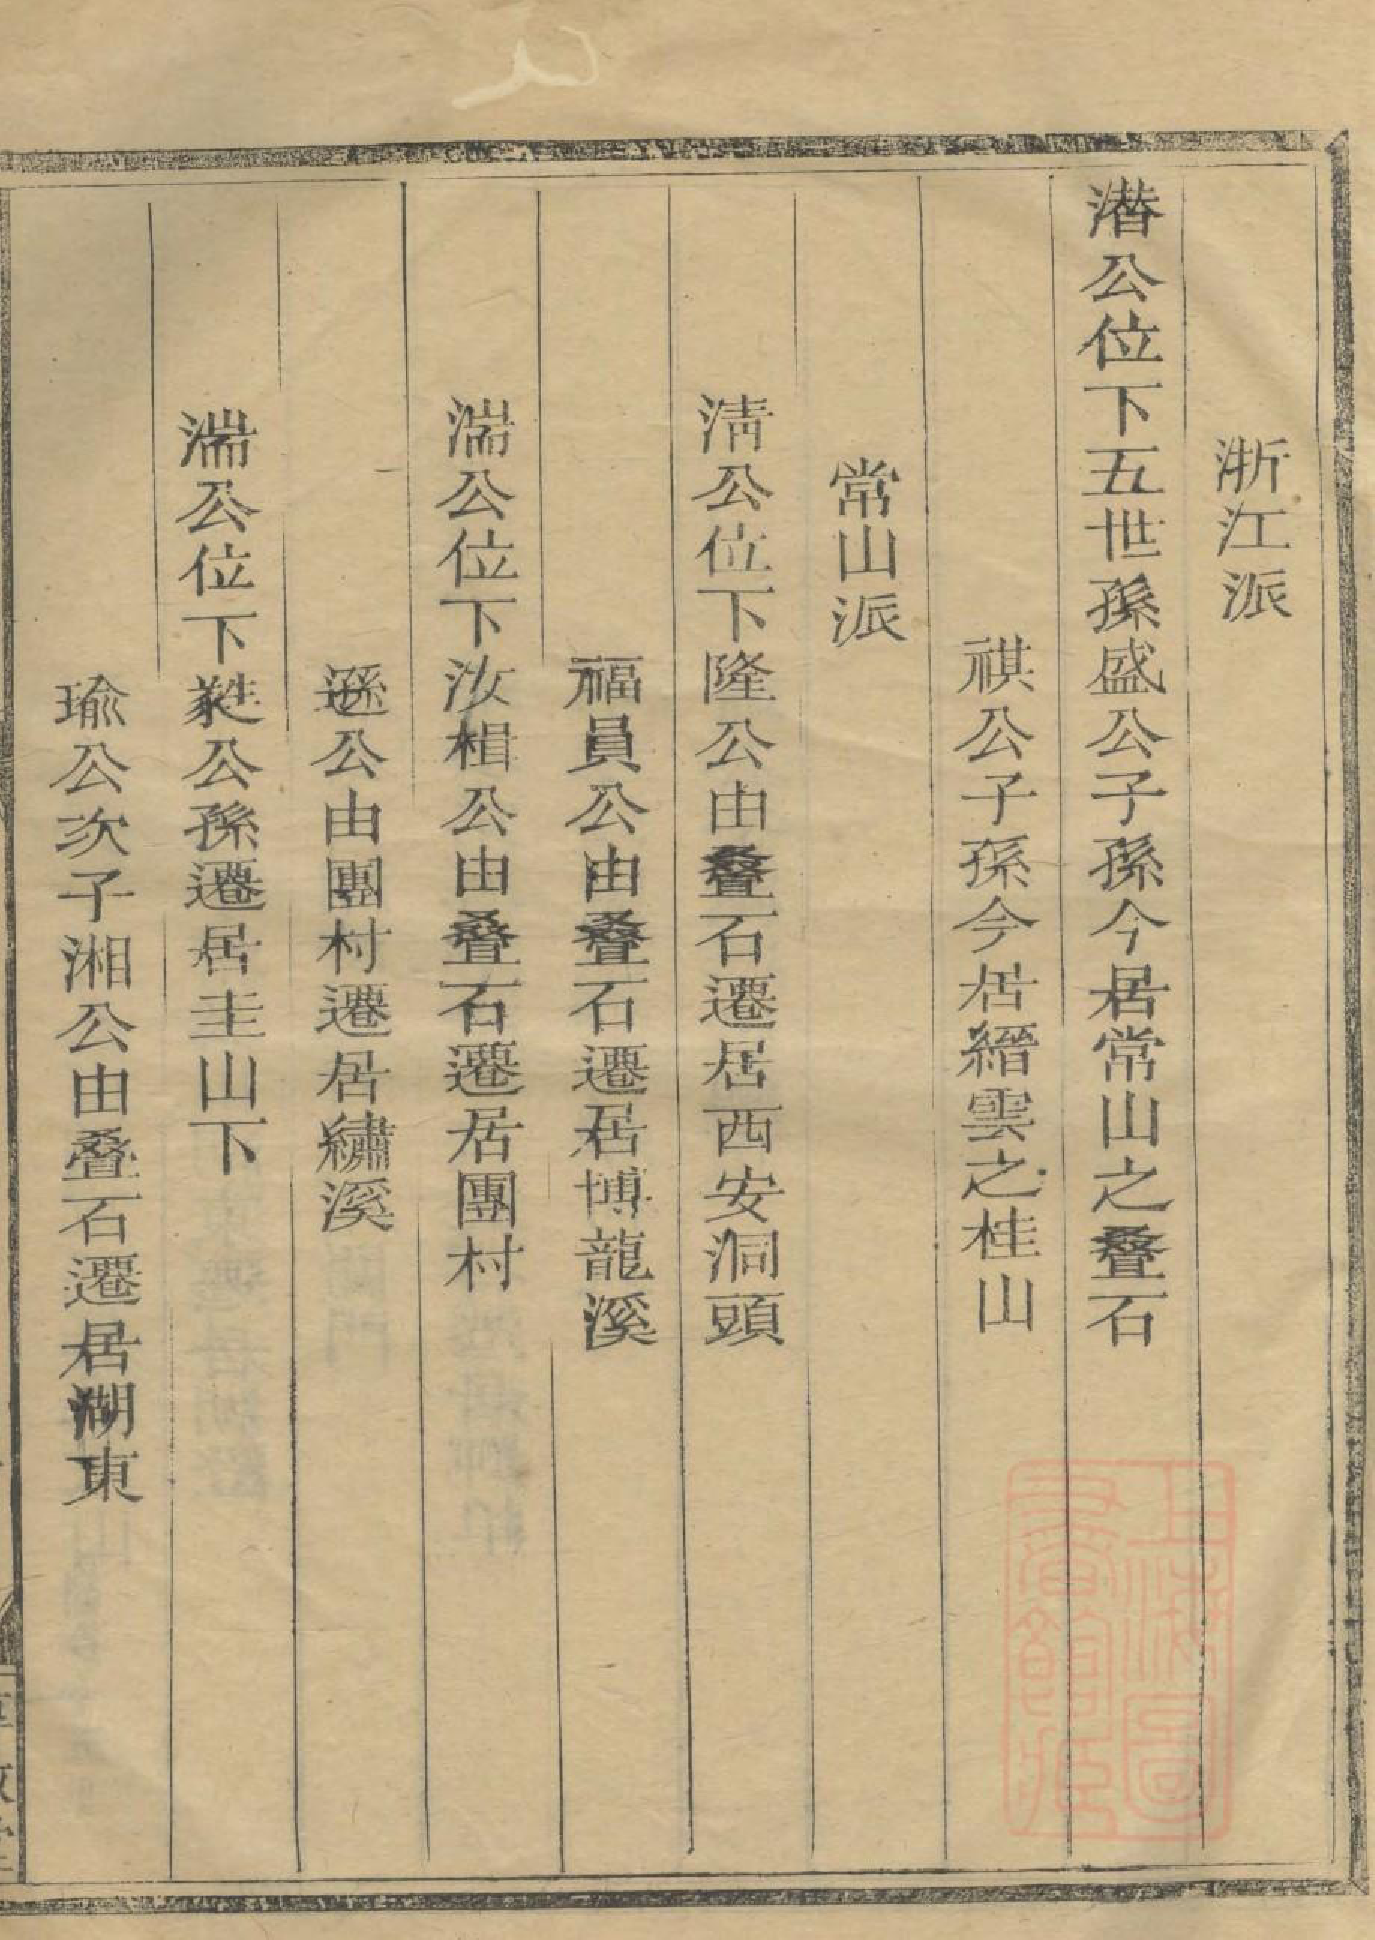 浙江派
濳公位下五世孫盛公子孫今居常山之叠石
祺公子孫今居縉雲之桂山
常山派
淸公位下隆公由叠石遷居西安洞頭
福員公由叠石遷居博龍溪
湍公位下汝楫公由叠石遷居團村
遜公由團村遷居繡溪
湍公位下公孫遷居圭山下
瑜公次子湘公由叠石遷居湖東
上海圖書館藏